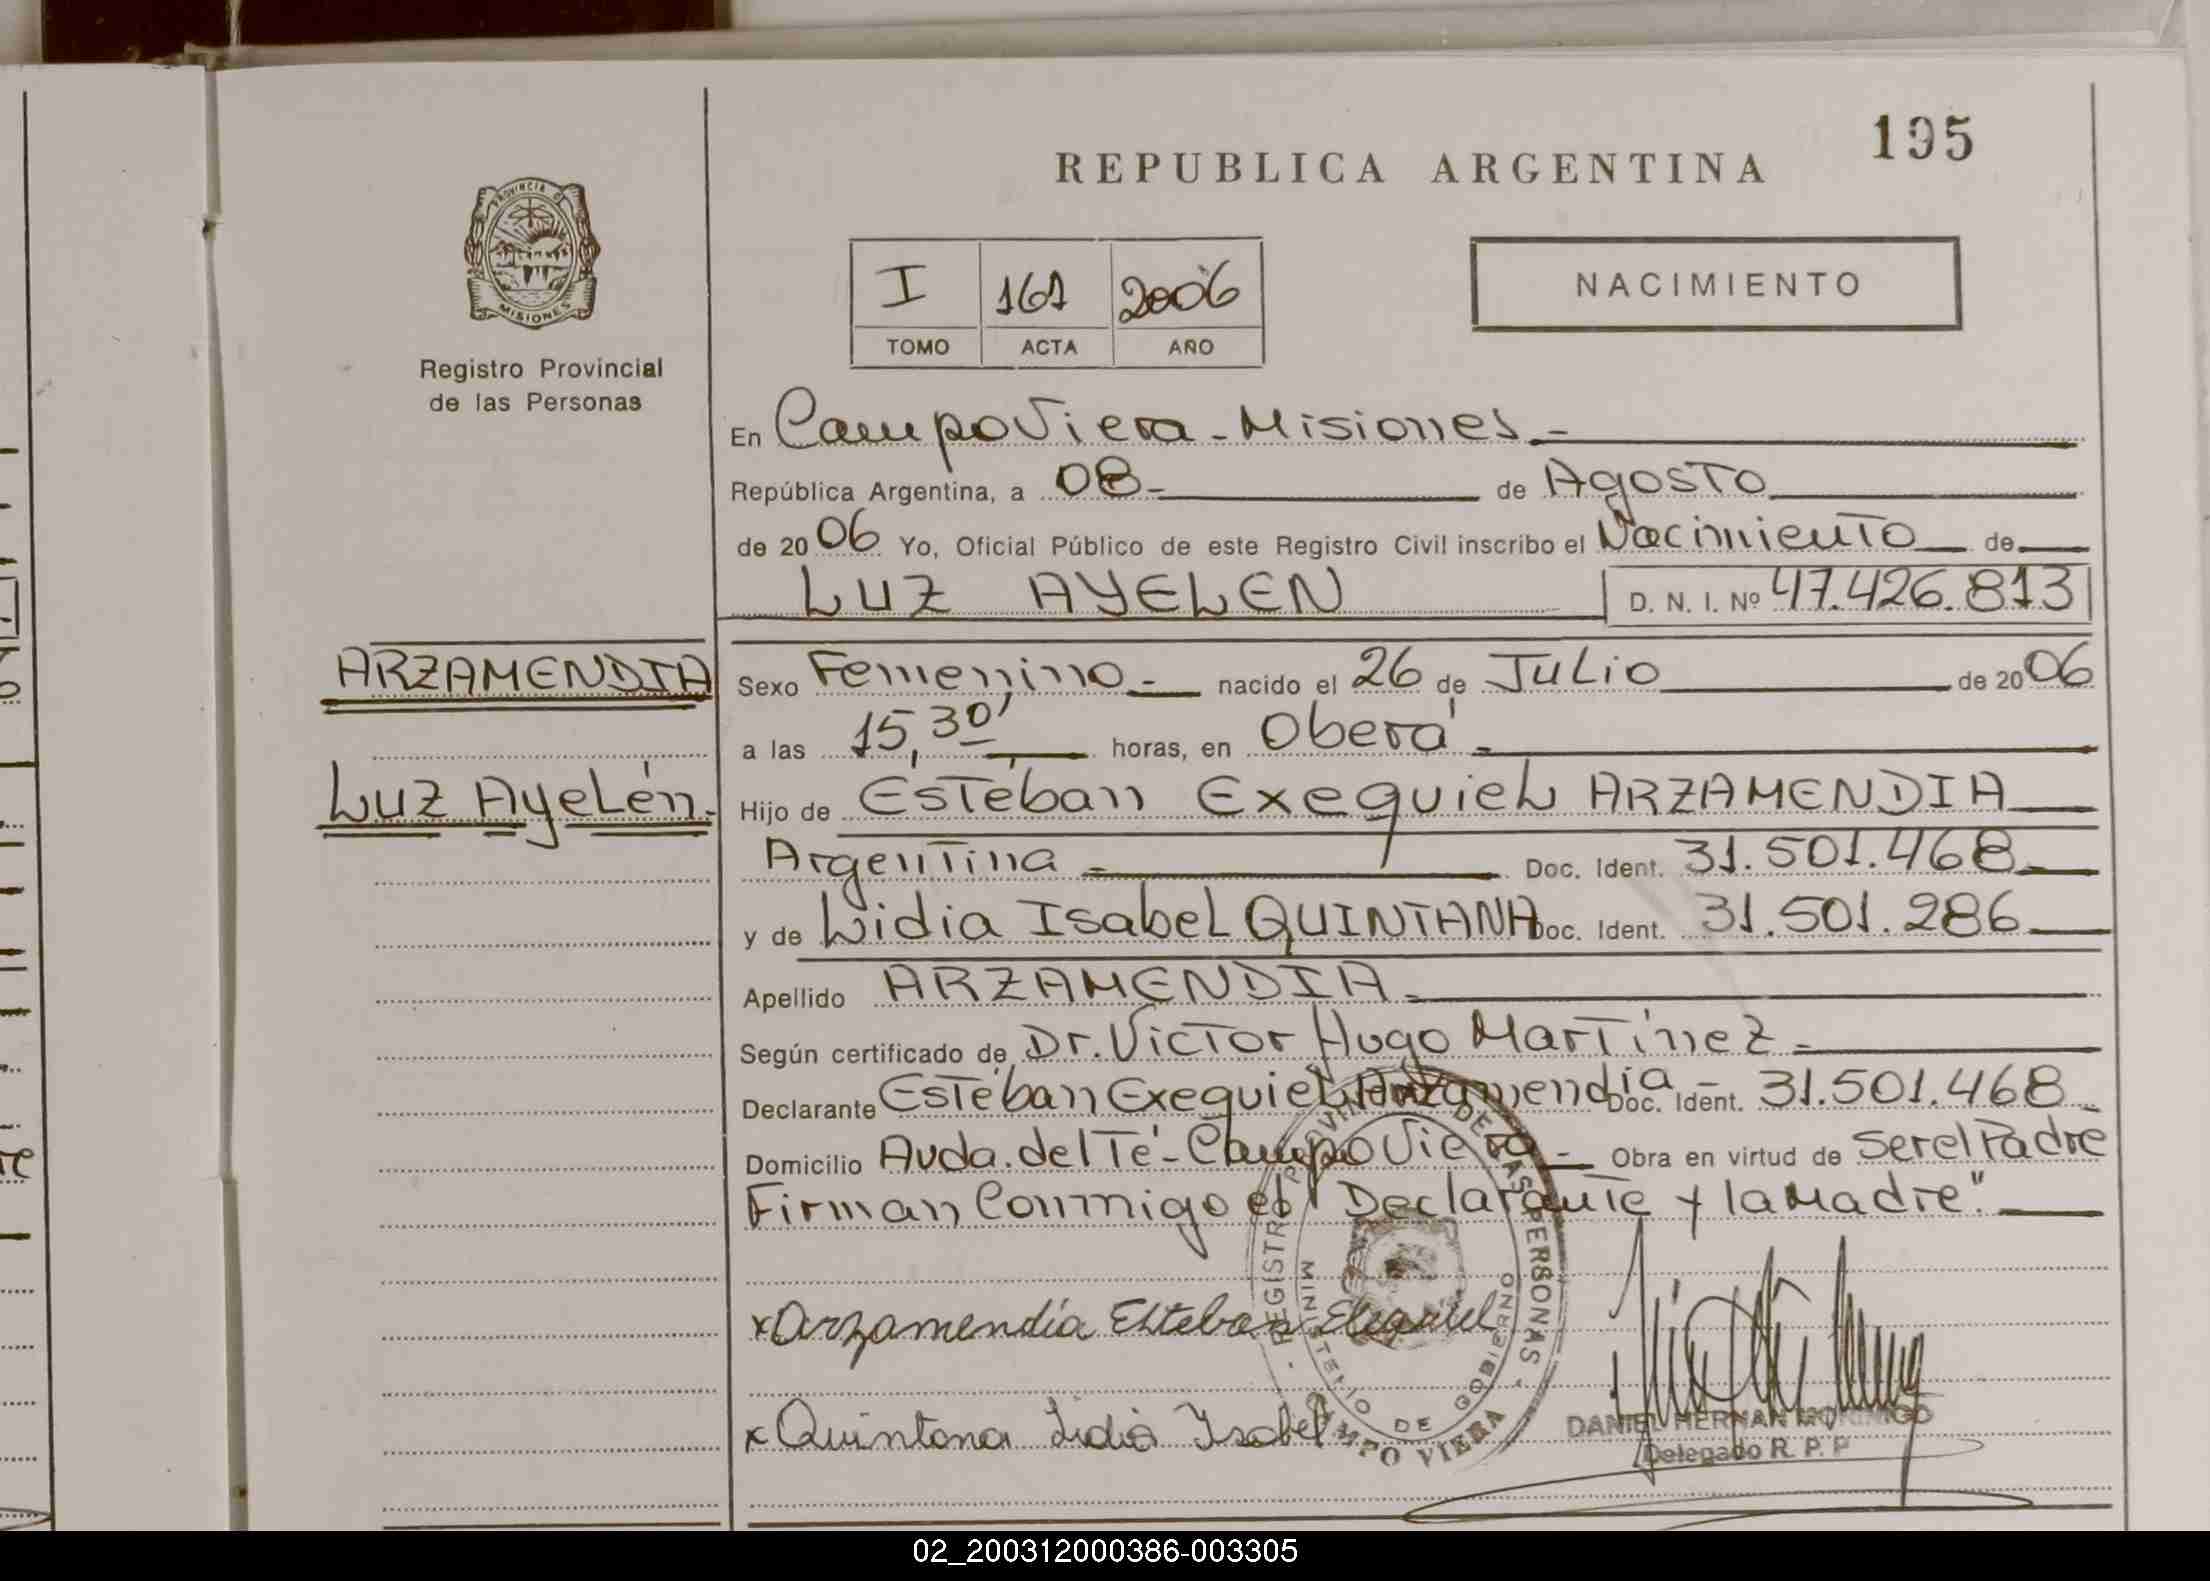 195
REPUBLICA ARGENTINA
PROVINCIA DE
MISIONES
Registro Provincial
de las Personas
I 161 2006
TOMO ACTA AÑO
NACIMIENTO
En Campo Viera - Misiones -
República Argentina, a 08 - de Agosto
de 2006 Yo, Oficial Público de este Registro Civil inscribo el Nacimiento de
LUZ AYELEN D. N. I. Nº 47.426.813
ARZAMENDIA
Luz Ayelén.
Sexo Femenino - nacido el 26 de Julio de 2006
a las 15,30' horas, en Oberá -
Hijo de Estéban Exequiel ARZAMENDIA
Argentina - Doc. Ident. 31.501.468
y de Lidia Isabel QUINTANA Doc. Ident. 31.501.286
Apellido ARZAMENDIA -
Según certificado de Dr. Victor Hugo Martínez -
Declarante Estéban Exequiel Arzamendia - Doc. Ident. 31.501.468
Domicilio Avda. del Té - Campo Viera - Obra en virtud de Ser el Padre
Firman Conmigo el "Declarante y la Madre".
x Arzamendia Esteban Exequiel
x Quintana Lidia Isabel
REGISTRO PROVINCIAL DE LAS PERSONAS
MINISTERIO DE GOBIERNO
CAMPO VIERA
DANIEL HERNAN MORINIGO
Delegado R. P. P
02_200312000386-003305